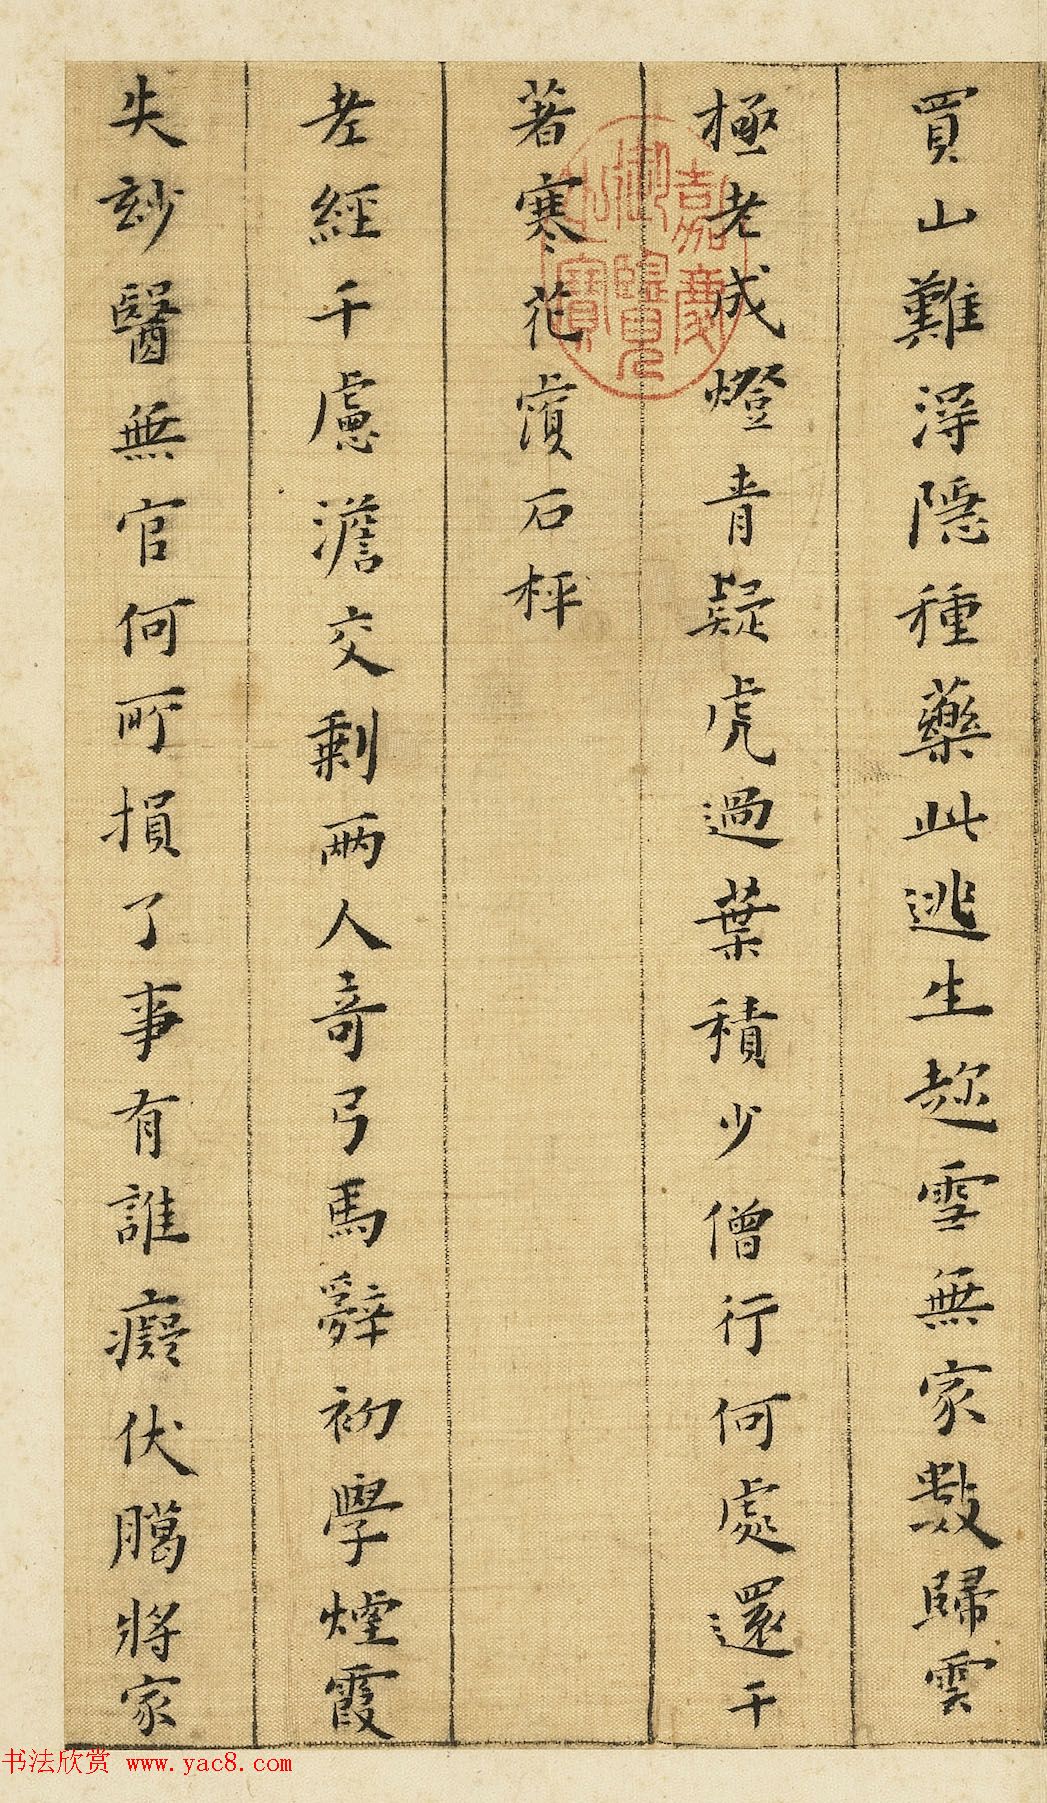 買山難淂隱種藥此逃生趂雪無家數歸雲
極老成燈青疑虎過葉積少僧行何處還千
著寒花濱石枰
老經千慮澹交剩兩人奇弓馬辭初學煙霞
失玅醫無官何所損了事有誰癡伏臈將家
嘉慶御覽之寶
书法欣赏 www.yac8.com